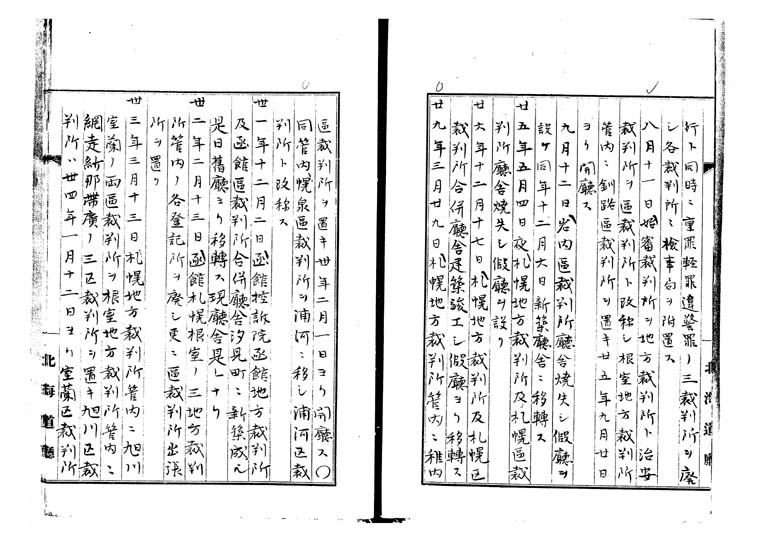 行ト同時ニ重罪軽罪違警罪ノ三裁判所ヲ廢
シ各裁判所ニ檢事局ヲ附置ス
八月十一日始審裁判所ヲ地方裁判所ト治安
裁判所ヲ區裁判所ト改称シ根室地方裁判所
管内ニ釧路區裁判所ヲ置キ廿五年九月廿日
ヨリ開廳ス
九月十二日岩内區裁判所廳舎焼失シ假廳ヲ
設ケ同年十二月六日新築廳舎ニ移轉ス
廿五年五月四日夜札幌地方裁判所及札幌區裁
判所廳舎焼失シ假廳ヲ設ク
廿六年十二月十七日札幌地方裁判所及札幌區
裁判所合併廳舎建築竣工シ假廳ヨリ移轉ス
廿九年三月廿九日札幌地方裁判所管内ニ稚内
北海道廳
區裁判所ヲ置キ卅年二月一日ヨリ開廳ス〇
同管内幌泉區裁判所ヲ浦河ニ移シ浦河區裁
判所ト改称ス
卅一年十二月二日函館控訴院函館地方裁判所
及函館區裁判所合併廳舎汐見町ニ新築成ル
是日舊廳ヨリ移轉ス現廳舎是レナリ
卅二年二月十三日函館札幌根室ノ三地方裁判
所管内ノ各登記所ヲ廢シ更ニ區裁判所出張
所ヲ置ク
卅三年三月十三日札幌地方裁判所管内ニ旭川
室蘭ノ両區裁判所ヲ根室地方裁判所管内ニ
網走紗那帯廣ノ三区裁判所ヲ置キ旭川区裁
判所ハ卅四年一月十二日ヨリ室蘭区裁判所
北海道廳